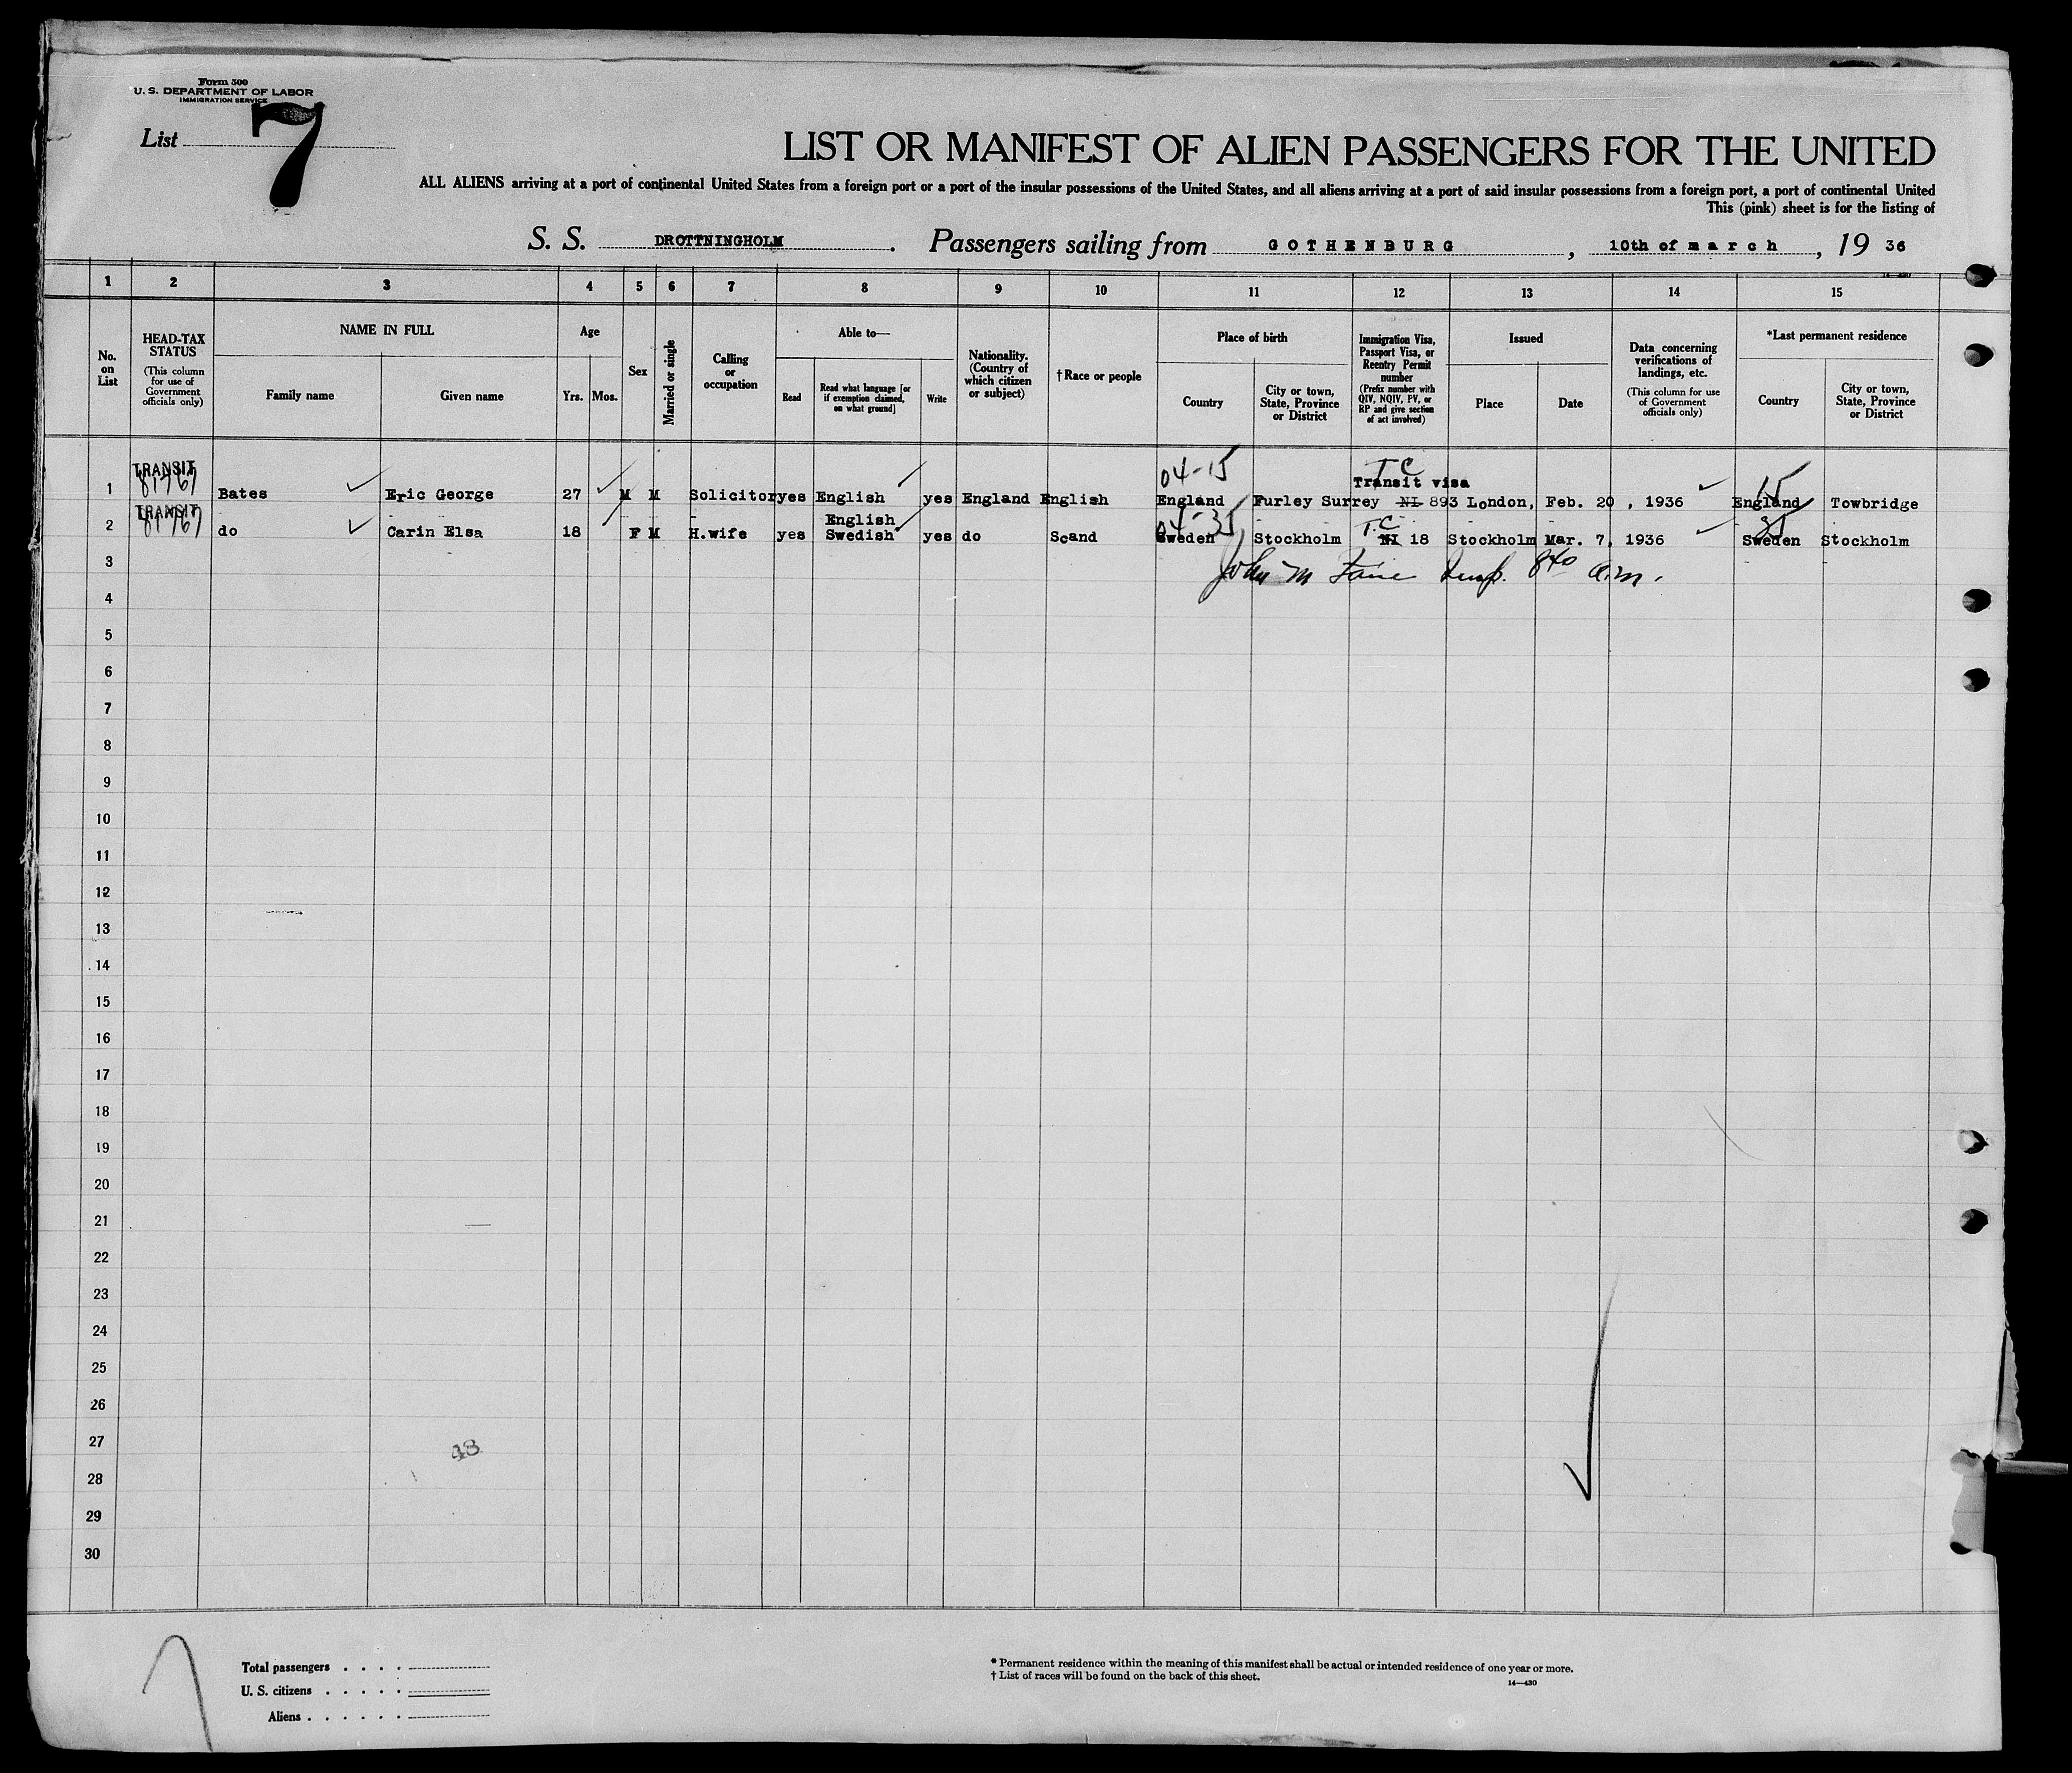 Form 500
U. S. DEPARTMENT OF LABOR
IMMIGRATION SERVICE
List 7
LIST OR MANIFEST OF ALIEN PASSENGERS FOR THE UNITED
ALL ALIENS arriving at a port of continental United States from a foreign port or a port of the insular possessions of the United States, and all aliens arriving at a port of said insular possessions from a foreign port, a port of continental United
This (pink) sheet is for the listing of
S. S. DROTTNINGHOLM. Passengers sailing from GOTHENBURG, 10th of march, 19 36
14—430
1 2 3 4 5 6 7 8 9 10 11 12 13 14 15
No. on List
HEAD-TAX STATUS (This column for use of Government officials only)
NAME IN FULL
Family name
Given name
Age
Yrs. Mos.
Sex
Married or single
Calling or occupation
Able to—
Read
Read what language [or if exemption claimed, on what ground]
Write
Nationality. (Country of which citizen or subject)
†Race or people
Place of birth
Country
City or town, State, Province or District
Immigration Visa, Passport Visa, or Reentry Permit number (Prefix number with QIV, NQIV, PV, or RP and give section of act involved)
Issued
Place
Date
Data concerning verifications of landings, etc. (This column for use of Government officials only)
*Last permanent residence
Country
City or town, State, Province or District
TRANSIT 04-15 T C
81767 Transit visa 15
1 Bates Eric George 27 M M Solicitor yes English yes England English England Furley Surrey NI 893 London, Feb. 20, 1936 England Towbridge
TRANSIT English 04-35 T.C. 35
81767
2 do Carin Elsa 18 F M H.wife yes Swedish yes do Scand Sweden Stockholm NI 18 Stockholm Mar. 7, 1936 Sweden Stockholm
3 John M 840 a.m.
4
5
6
7
8
9
10
11
12
13
14
15
16
17
18
19
20
21
22
23
24
25
26
27
48
28
29
30
Total passengers . . . .
U. S. citizens . . . . .
Aliens . . . . . .
* Permanent residence within the meaning of this manifest shall be actual or intended residence of one year or more.
† List of races will be found on the back of this sheet.
14—430